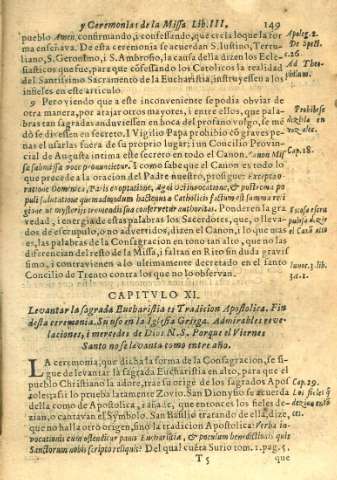 y Ceremonias de la Missa. Lib. III. 149
pueblo Amen, confirmando, i confessando, que cree la que la for
ma enseñava. De esta ceremonia se acuerdan S. Iustino, Tertu-
liano, S. Geronimo, i S. Ambrosio, la causa della dizen los Ecle-
siasticos que fue, para que cõfessando los Catolicos la realidad
del Santissimo Sacramento de la Eucharistia, instruyessen a los
infieles en este articulo.
9 Pero viendo que a este inconveniente se podia obviar de
otra manera, por atajar otros mayores, i entre ellos, que pala-
bras tan sagradas anduviessen en boca del profano vulgo, se mã
dò se dixessen en secreto. I Vigilio Papa prohibiò cõ graves pe-
nas el usarlas fuera de su proprio lugar: i un Concilio Provin-
cial de Augusta intima este secreto en todo el Canon. Canon Mis
sæ submissa voce pronuncietur. I como sabe que el Canon es todo lo
que precede a la oracion del Padre nuestro, prosigue:
ratione Dominica, Pacis exoptatione, Agni Dei invocatione, & postrema po
puli salutatione quemadmodum hactenus a Catholicis factum est summa reli
gione ut mysterijs reverentia sua conservetur Ponderen la gra
vedad, i energia de estas palabras los Sacerdotes, que, o lleva-
dos de escrupulo, o no advertidos, dizen el Canon, i lo que mas
es, las palabras de la Consagracion en tono tan alto, que no las
diferencian del resto de la Missa, i faltan en Rito sin duda gravis
simo, i contravienen a lo ultimamente decretado en el santo
Concilio de Trento contra los que no lo observan.
Apolog. 2.
26.
Ad Theo
Prohibese
dezirla en
voz alta.
Cap. 18.
el Canõ alto
3. d. 1.
CAPITVLO XI.
Levantar la sagrada Eucharistia es Tradicion Apostolica. Fin
desta ceremonia. Su uso en la Iglesia Griega. Admirables reve-
laciones, i mercedes de Dios N. S. Porque el Viernes
Santo no se levanta como entre año.
LA ceremonia, que dicha la forma de la Consagracion, se si-
gue de levantar la sagrada Eucharistia en alto, para que el
pueblo Christiano la adore, trae su origẽ de los sagrados Apos
toles: assi lo prueba latamente Zovio. San Dionysio se acuerda
della como de Apostolica, i añade, que entonces los fieles de-
zian, o cantavan el Symbolo. San Basilio tratando de ella, dize,
que no halla otro origen, sino la tradicion Apostolica: Verba in-
vocationis cum ostenditur panis Eucharistiæ, & poculum benedictionis quis
Sanctorum nobis scripto reliquit? Del qual cuẽta Surio tom. 1. pag. 5.
Cap. 29.
Los fieles q̃
T 5 que